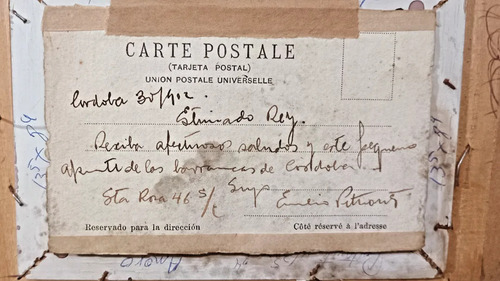 CARTE POSTALE
(TARJETA POSTAL)
UNION POSTALE UNIVERSELLE
Cordoba 30/912.
Estimado Rey.
Reciba afectuosos saludos y este pequeño
apunte de las barrancas de Cordoba
Sta Rosa 46 S/c Suyo Emilio
Reservado para la dirección Côté réservé à l'adresse
135 x 84
135 x 84